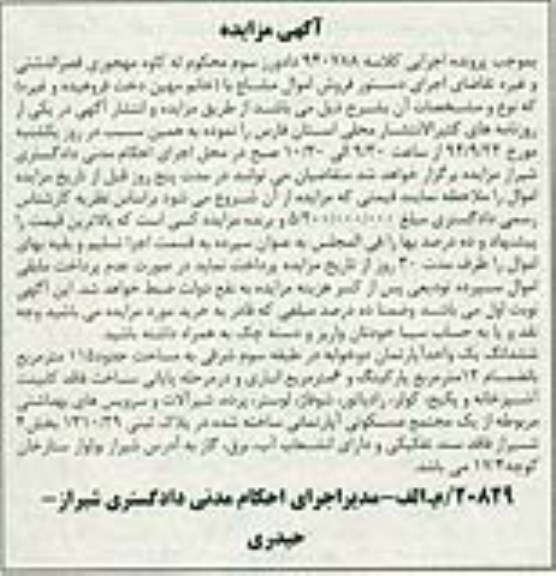 آگهی مزایده
بموجب پرونده اجرایی کلاسه ۹۴۰۷۸۸ دادورز سوم محکوم له کاوه مهجوری قصرالدشتی
و غیره تقاضای اجرای دستور فروش اموال مشاع با (خانم مهین دخت فروهیده و غیره)
که نوع و مشخصات آن بشرح ذیل می باشند از طریق مزایده و انتشار آگهی در یکی از
روزنامه های کثیرالانتشار محلی استان فارس را نموده به همین سبب در روز یکشنبه
مورخ ۹۴/۹/۲۲ از ساعت ۹/۳۰ الی ۱۰/۳۰ صبح در محل اجرای احکام مدنی دادگستری
شیراز مزایده برگزار خواهد شد متقاضیان می توانند در مدت پنج روز قبل از تاریخ مزایده
اموال را ملاحظه نمایند قیمتی که مزایده از آن شروع می شود براساس نظریه کارشناس
رسمی دادگستری مبلغ ۵/۲۰۰/۰۰۰/۰۰۰ و برنده مزایده کسی است که بالاترین قیمت را
پیشنهاد و ده درصد بها را فی المجلس به عنوان سپرده به قسمت اجرا تسلیم و بقیه بهای
اموال را ظرف مدت ۳۰ روز از تاریخ مزایده پرداخت نماید در صورت عدم پرداخت مابقی
اموال سپرده تودیعی پس از کسر هزینه مزایده به نفع دولت ضبط خواهد شد. این آگهی
نوبت اول می باشد. وضمنا ده درصد مبلغی که قادر به خرید مورد مزایده می باشید وجه
نقد و یا به حساب سیبا خودتان واریز و دسته چک به همراه داشته باشید.
ششدانگ یک واحد آپارتمان دوخوابه در طبقه سوم شرقی به مساحت حدود ۱۱۵ مترمربع
بانضمام ۱۲ مترمربع پارکینگ و ۶ مترمربع انباری و درمرحله پایانی ساخت فاقد کابینت
آشپزخانه و پکیج، کولر، رادیاتور، شوفاژ، لوستر، پرده، شیرآلات و سرویس های بهداشتی
مربوطه از یک مجتمع مسکونی آپارتمانی ساخته شده در پلاک ثبتی ۱۳۱۰/۳۹ بخش ۴
شیراز فاقد سند تفکیکی و دارای انشعاب آب، برق، گاز به آدرس شیراز بولوار ستارخان
کوچه ۱۷۴ می باشد.
۲۰۸۲۹/م.الف-مدیراجرای احکام مدنی دادگستری شیراز-
حیدری